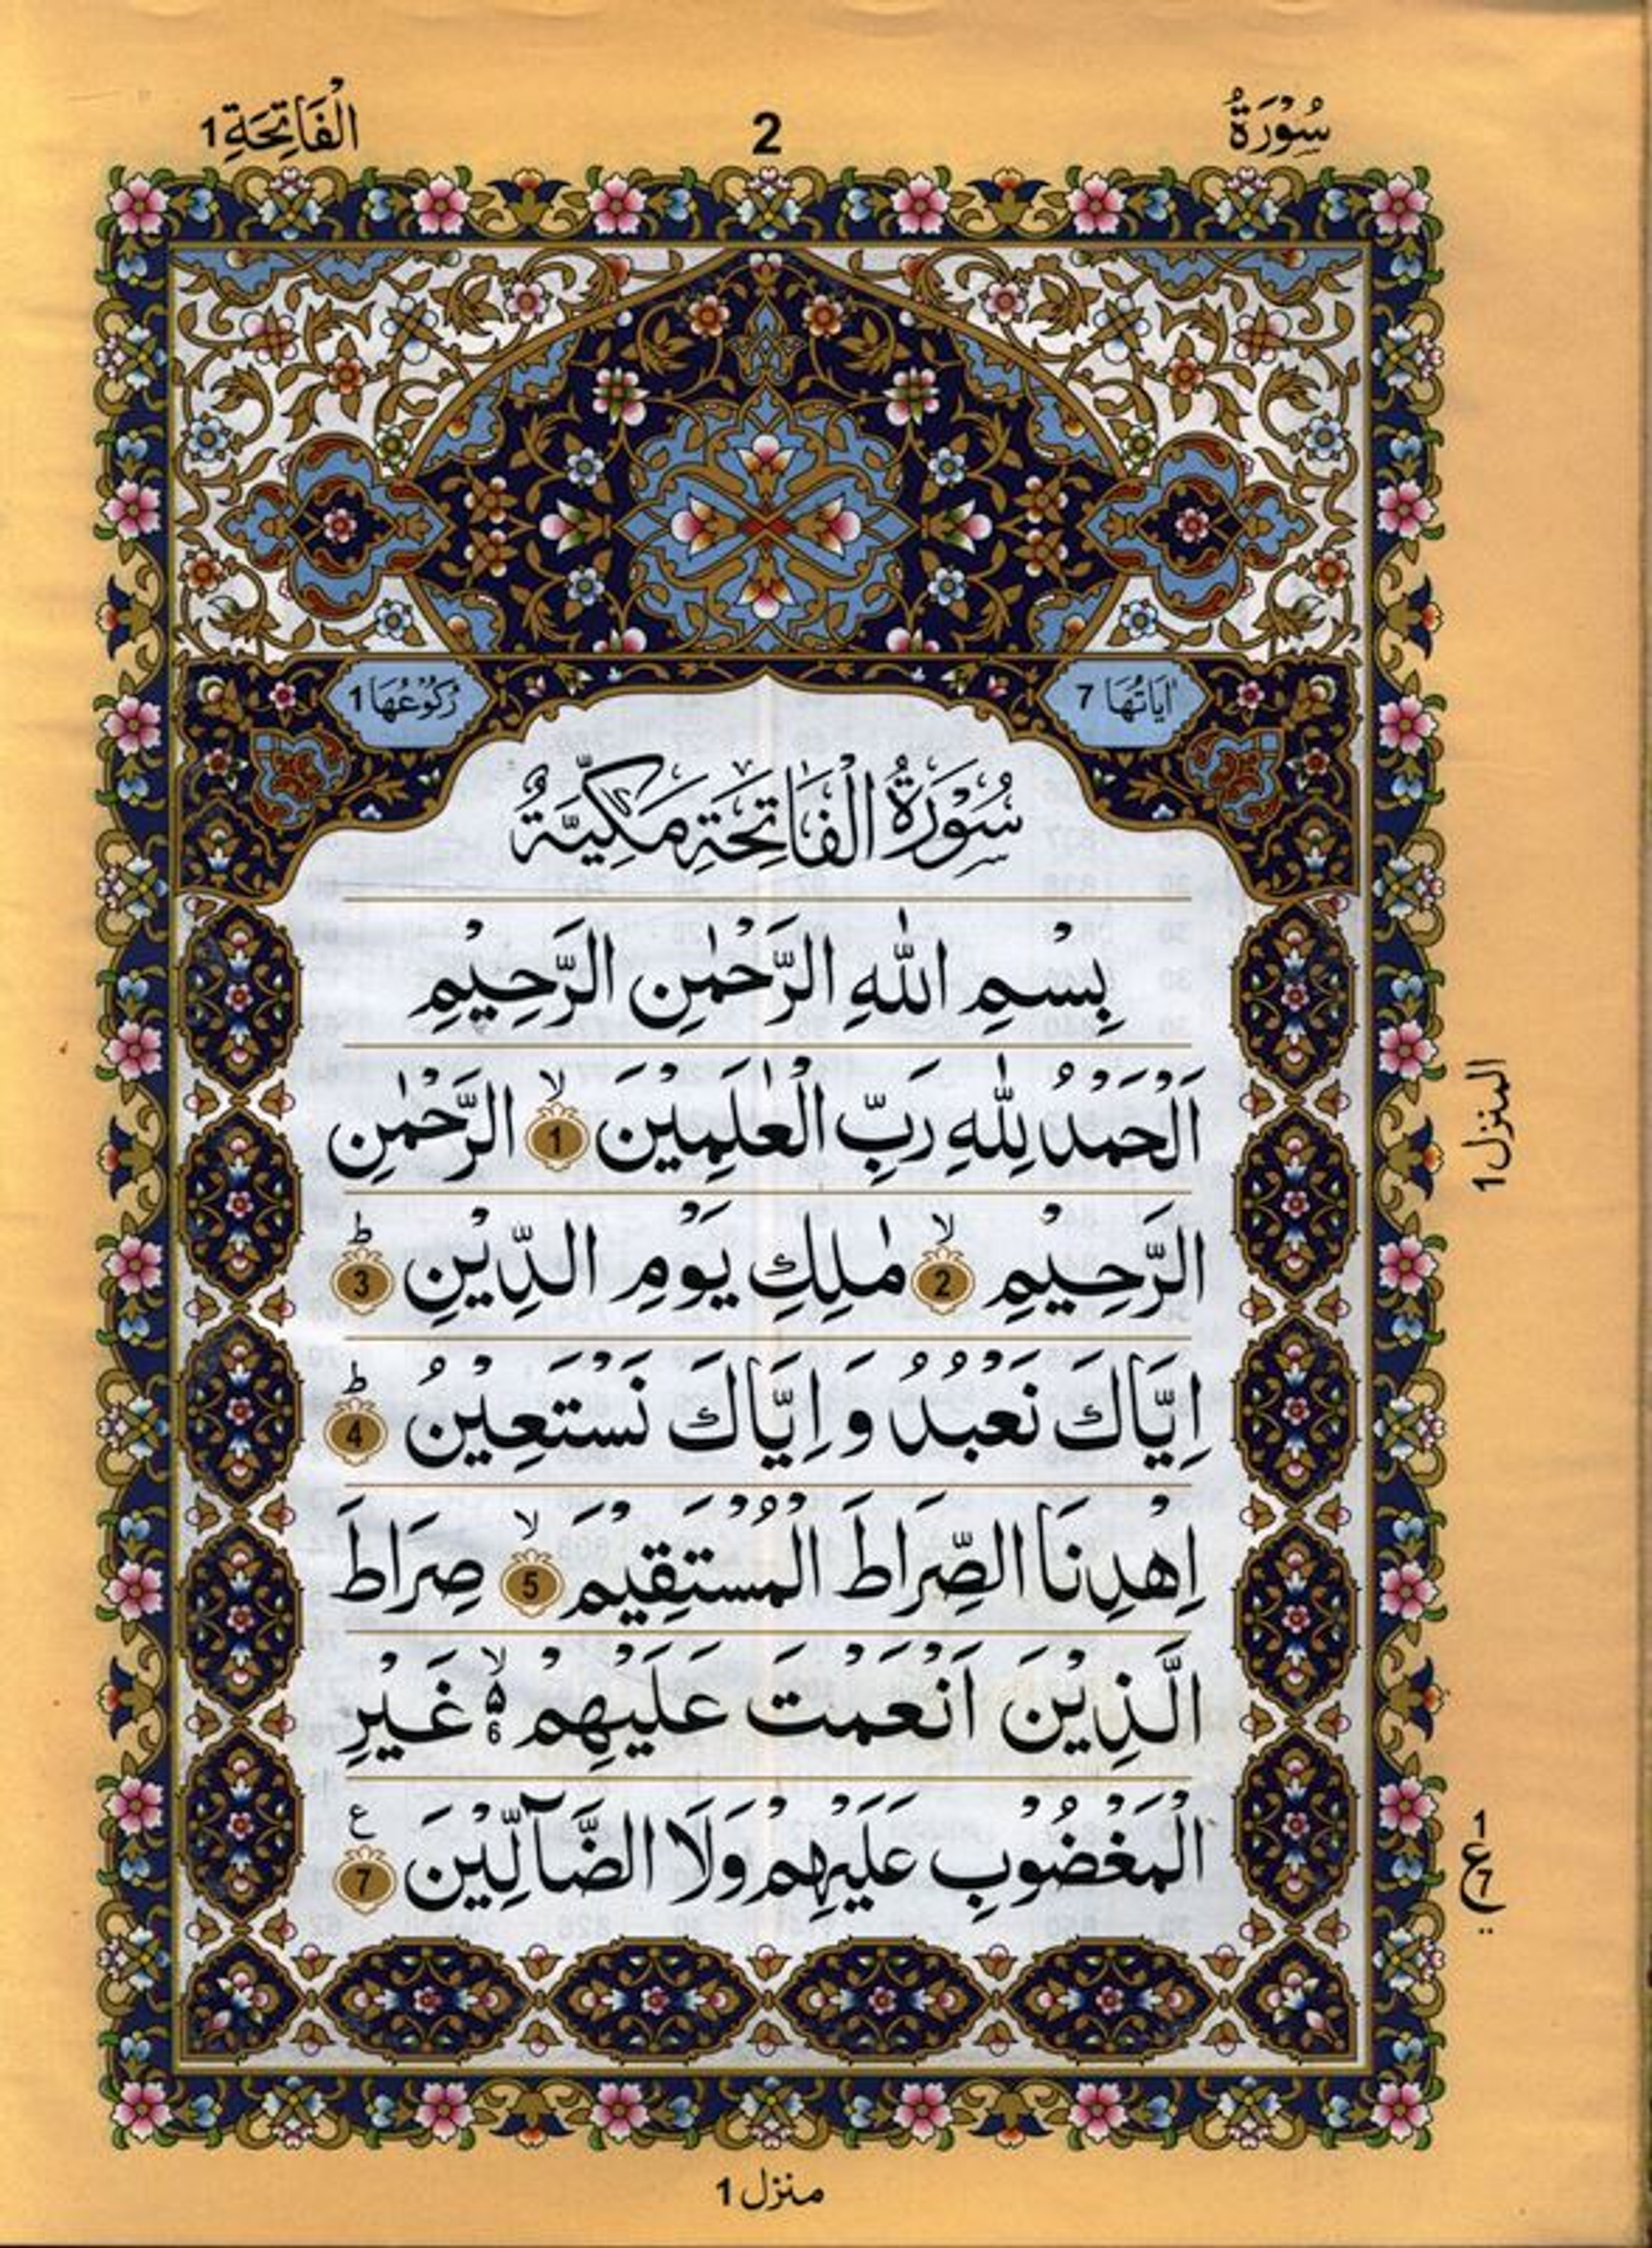 سُوْرَةُ
2
الْفَاتِحَةِ 1
اٰیَاتُهَا 7
رُكُوْعُهَا 1
سُوْرَةُ الْفَاتِحَةِ مَكِّیَّةٌ
بِسْمِ اللّٰهِ الرَّحْمٰنِ الرَّحِیْمِ
اَلْحَمْدُ لِلّٰهِ رَبِّ الْعٰلَمِیْنَ ۙ 1 الرَّحْمٰنِ
الرَّحِیْمِ ۙ 2 مٰلِكِ یَوْمِ الدِّیْنِ ؕ 3
اِیَّاكَ نَعْبُدُ وَ اِیَّاكَ نَسْتَعِیْنُ ؕ 4
اِهْدِنَا الصِّرَاطَ الْمُسْتَقِیْمَ ۙ 5 صِرَاطَ
الَّذِیْنَ اَنْعَمْتَ عَلَیْهِمْ ۙ ۵ 6 غَیْرِ
الْمَغْضُوْبِ عَلَیْهِمْ وَلَا الضَّآلِّیْنَ ع 7
المنزل 1
1
ع
7
منزل 1